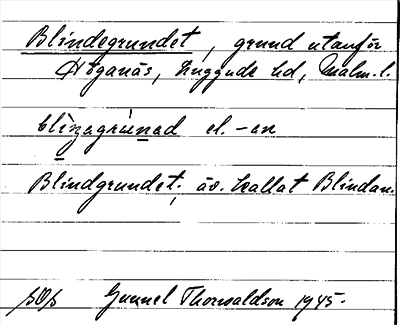 Blindegrundet, grund utanför
Höganäs, Luggude hd, Malm. l.
blìnagrúnad el. -an
Blindgrundet; äv. kallat Blindan.
Gunnel Thorvaldson 1945.